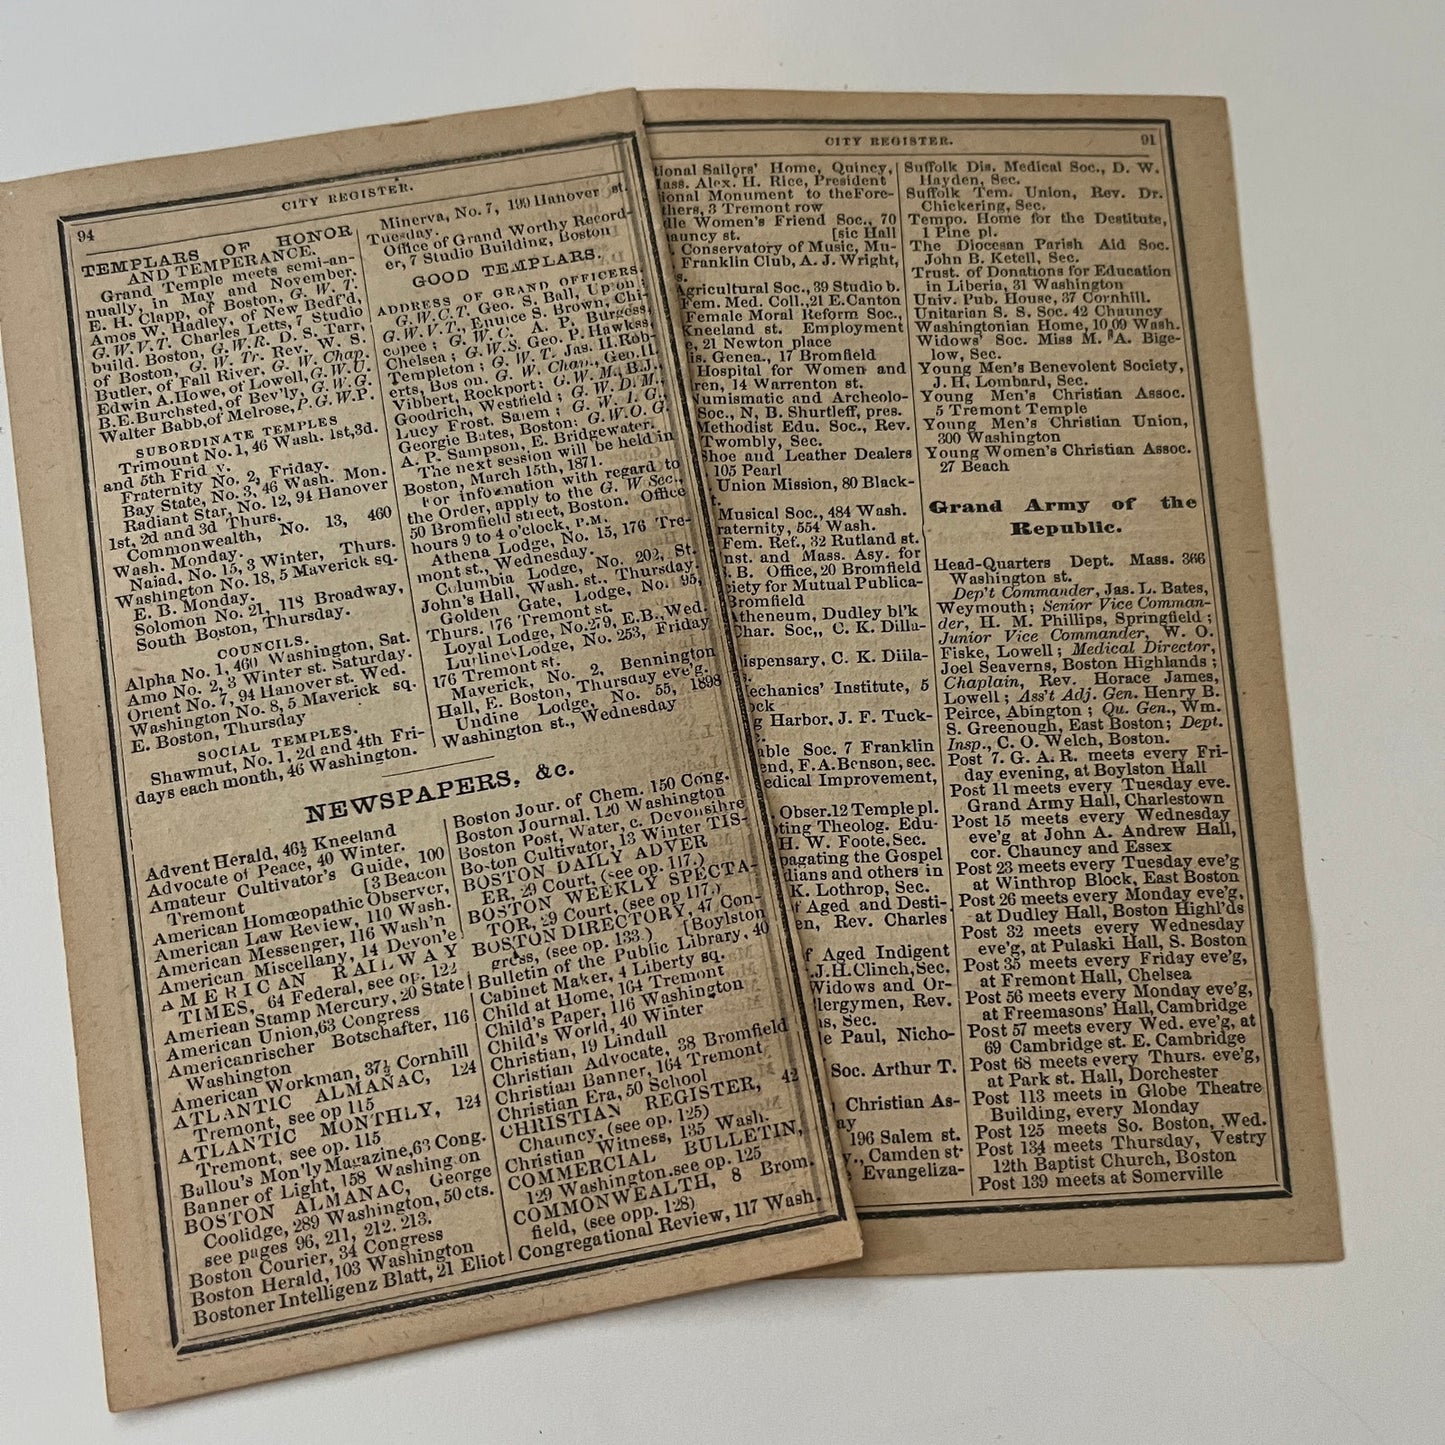 CITY REGISTER.
94
TEMPLARS OF HONOR
AND TEMPERANCE.
Grand Temple meets semi-an-
nually, in May and November.
E. H. Clapp, of Boston, G. W. T.
Amos W. Hadley, of New Bedf'd,
G.W.V.T. Charles Letts, 7 Studio
build. Boston, G.W.R. D. S. Tarr,
of Boston, G. W. Tr. Rev. W. S.
Butler, of Fall River, G. W. Chap.
Edwin A. Howe, of Lowell, G.W.U.
B.E. Burchsted, of Bev'ly, G. W. G.
Walter Babb, of Melrose, P.G.W.P.
SUBORDINATE TEMPLES
Trimount No. 1, 46 Wash. 1st, 3d.
and 5th Frid y.
Fraternity No. 2, Friday.
Bay State, No. 3, 46 Wash. Mon.
Radiant Star, No. 12, 94 Hanover
1st, 2d and 3d Thurs.
Commonwealth, No. 13, 460
Wash. Monday.
Naiad, No. 15, 3 Winter, Thurs.
Washington No. 18, 5 Maverick sq.
E. B. Monday.
Solomon No. 21, 118 Broadway,
South Boston, Thursday.
COUNCILS.
Alpha No. 1, 460 Washington, Sat.
Amo No. 2, 3 Winter st. Saturday.
Orient No. 7, 94 Hanover st. Wed.
Washington No. 8, 5 Maverick sq.
E. Boston, Thursday
SOCIAL TEMPLES.
Shawmut, No. 1, 2d and 4th Fri-
days each month, 46 Washington.
Minerva, No. 7, 199 Hanover st.
Tuesday.
Office of Grand Worthy Record-
er, 7 Studio Building, Boston
GOOD TEMPLARS.
ADDRESS OF GRAND OFFICERS.
G.W.C.T. Geo. S. Ball, Upton;
G.W.V.T., Eunice S. Brown, Chi-
copee; G.W.C. A. P. Burgess,
Chelsea; G.W.S. Geo. P. Hawkss,
Templeton; G. W. T. Jas. H. Rob-
erts, Bos on. G. W. Chap., Geo. H.
Vibbert, Rockport; G.W.M., B.J.
Goodrich, Westfield; G. W. D. M.,
Lucy Frost. Salem; G. W. I. G.,
Georgie Bates, Boston; G.W.O.G.
A. P. Sampson, E. Bridgewater.
The next session will be held in
Boston, March 15th, 1871.
For information with regard to
the Order, apply to the G. W Sec.,
50 Bromfield street, Boston. Office
hours 9 to 4 o'clock, P.M.
Athena Lodge, No. 15, 176 Tre-
mont st., Wednesday.
Columbia Lodge, No. 202, St.
John's Hall, Wash. st., Thursday.
Golden Gate, Lodge, No. 95,
Thurs. 176 Tremont st.
Loyal Lodge, No. 279, E.B., Wed.
Lurline Lodge, No. 253, Friday
176 Tremont st.
Maverick, No. 2, Bennington
Hall, E. Boston, Thursday eve'g.
Undine Lodge, No. 55, 1898
Washington st., Wednesday
NEWSPAPERS, &c.
Advent Herald, 46½ Kneeland
Advocate of Peace, 40 Winter.
Amateur Cultivator's Guide, 100
Tremont [3 Beacon
American Homœopathic Observer,
American Law Review, 110 Wash.
American Messenger, 116 Wash'n
American Miscellany, 14 Devon'e
AMERICAN RAILWAY
TIMES, 64 Federal, see op. 122
American Stamp Mercury, 20 State
American Union, 63 Congress
Americanrischer Botschafter, 116
Washington
American Workman, 37½ Cornhill
ATLANTIC ALMANAC, 124
Tremont, see op 115
ATLANTIC MONTHLY, 124
Tremont, see op. 115
Ballou's Mon'ly Magazine, 63 Cong.
Banner of Light, 158 Washing on
BOSTON ALMANAC, George
Coolidge, 289 Washington, 50 cts.
see pages 96, 211, 212. 213.
Boston Courier, 34 Congress
Boston Herald, 103 Washington
Bostoner Intelligenz Blatt, 21 Eliot
Boston Jour. of Chem. 150 Cong.
Boston Journal. 120 Washington
Boston Post, Water, c. Devonsihre
Boston Cultivator, 13 Winter TIS-
BOSTON DAILY ADVER
ER, 29 Court, (see op. 117.)
BOSTON WEEKLY SPECTA-
TOR, 29 Court, (see op 117.)
BOSTON DIRECTORY, 47 Con-
gress, (see op. 133.) [Boylston
Bulletin of the Public Library, 40
Cabinet Maker, 4 Liberty sq.
Child at Home, 164 Tremont
Child's Paper, 116 Washington
Child's World, 40 Winter
Christian, 19 Lindall
Christian Advocate, 38 Bromfield
Christian Banner, 164 Tremont
Christian Era, 50 School
CHRISTIAN REGISTER, 42
Chauncy, (see op. 125)
Christian Witness, 135 Wash.
COMMERCIAL BULLETIN,
129 Washington. see op. 125
COMMONWEALTH, 8 Brom.
field, (see opp. 128)
Congregational Review, 117 Wash.
CITY REGISTER.
91
tional Sailors' Home, Quincy,
ass. Alex. H. Rice, President
ional Monument to the Fore-
thers, 3 Tremont row
dle Women's Friend Soc., 70
auncy st. [sic Hall
Conservatory of Music, Mu-
Franklin Club, A. J. Wright,
s.
Agricultural Soc., 39 Studio b.
Fem. Med. Coll., 21 E. Canton
Female Moral Reform Soc.,
Kneeland st. Employment
e, 21 Newton place
is. Genea., 17 Bromfield
Hospital for Women and
ren, 14 Warrenton st.
Numismatic and Archeolo-
Soc., N, B. Shurtleff, pres.
Methodist Edu. Soc., Rev.
Twombly, Sec.
Shoe and Leather Dealers
105 Pearl
Union Mission, 80 Black-
t.
Musical Soc., 484 Wash.
raternity, 554 Wash.
Fem. Ref., 32 Rutland st.
nst. and Mass. Asy. for
B. Office, 20 Bromfield
iety for Mutual Publica-
Bromfield
Atheneum, Dudley bl'k
Char. Soc,, C. K. Dilla-
ispensary, C. K. Diila-
echanics' Institute, 5
ock
g Harbor. J. F. Tuck-
able Soc. 7 Franklin
end, F.A. Benson, sec.
edical Improvement,
Obser. 12 Temple pl.
ting Theolog. Edu-
H. W. Foote. Sec.
pagating the Gospel
dians and others in
K. Lothrop, Sec.
f Aged and Desti-
en, Rev. Charles
f Aged Indigent
J.H. Clinch, Sec.
Widows and Or-
lergymen, Rev.
s, Sec.
e Paul, Nicho-
Soc. Arthur T.
Christian As-
ay
196 Salem st.
y., Camden st
Evangeliza-
Suffolk Dis. Medical Soc., D. W.
Hayden, Sec.
Suffolk Tem. Union, Rev. Dr.
Chickering, Sec.
Tempo. Home for the Destitute,
1 Pine pl.
The Diocesan Parish Aid Soc.
John B. Ketell, Sec.
Trust. of Donations for Education
in Liberia, 31 Washington
Univ. Pub. House, 37 Cornhill.
Unitarian S. S. Soc. 42 Chauncy
Washingtonian Home, 10 09 Wash.
Widows' Soc. Miss M. A. Bige-
low, Sec.
Young Men's Benevolent Society,
J. H. Lombard, Sec.
Young Men's Christian Assoc.
5 Tremont Temple
Young Men's Christian Union,
300 Washington
Young Women's Christian Assoc.
27 Beach
Grand Army of the
Republic.
Head-Quarters Dept. Mass. 366
Washington st.
Dep't Commander, Jas. L. Bates,
Weymouth; Senior Vice Comman-
der, H. M. Phillips, Springfield;
Junior Vice Commander, W. O.
Fiske, Lowell; Medical Director,
Joel Seaverns, Boston Highlands;
Chaplain, Rev. Horace James,
Lowell; Ass't Adj. Gen. Henry B.
Peirce, Abington; Qu. Gen., Wm.
S. Greenough, East Boston; Dept.
Insp., C. O. Welch, Boston.
Post 7. G. A. R. meets every Fri-
day evening, at Boylston Hall
Post 11 meets every Tuesday eve.
Grand Army Hall, Charlestown
Post 15 meets every Wednesday
eve'g at John A. Andrew Hall,
cor. Chauncy and Essex
Post 23 meets every Tuesday eve'g
at Winthrop Block, East Boston
Post 26 meets every Monday eve'g,
at Dudley Hall, Boston Highl'ds
Post 32 meets every Wednesday
eve'g, at Pulaski Hall, S. Boston
Post 35 meets every Friday eve'g,
at Fremont Hall, Chelsea
Post 56 meets every Monday eve'g,
at Freemasons' Hall, Cambridge
Post 57 meets every Wed. eve'g, at
69 Cambridge st. E. Cambridge
Post 68 meets every Thurs. eve'g,
at Park st. Hall, Dorchester
Post 113 meets in Globe Theatre
Building, every Monday
Post 125 meets So. Boston, Wed.
Post 134 meets Thursday, Vestry
12th Baptist Church, Boston
Post 139 meets at Somerville